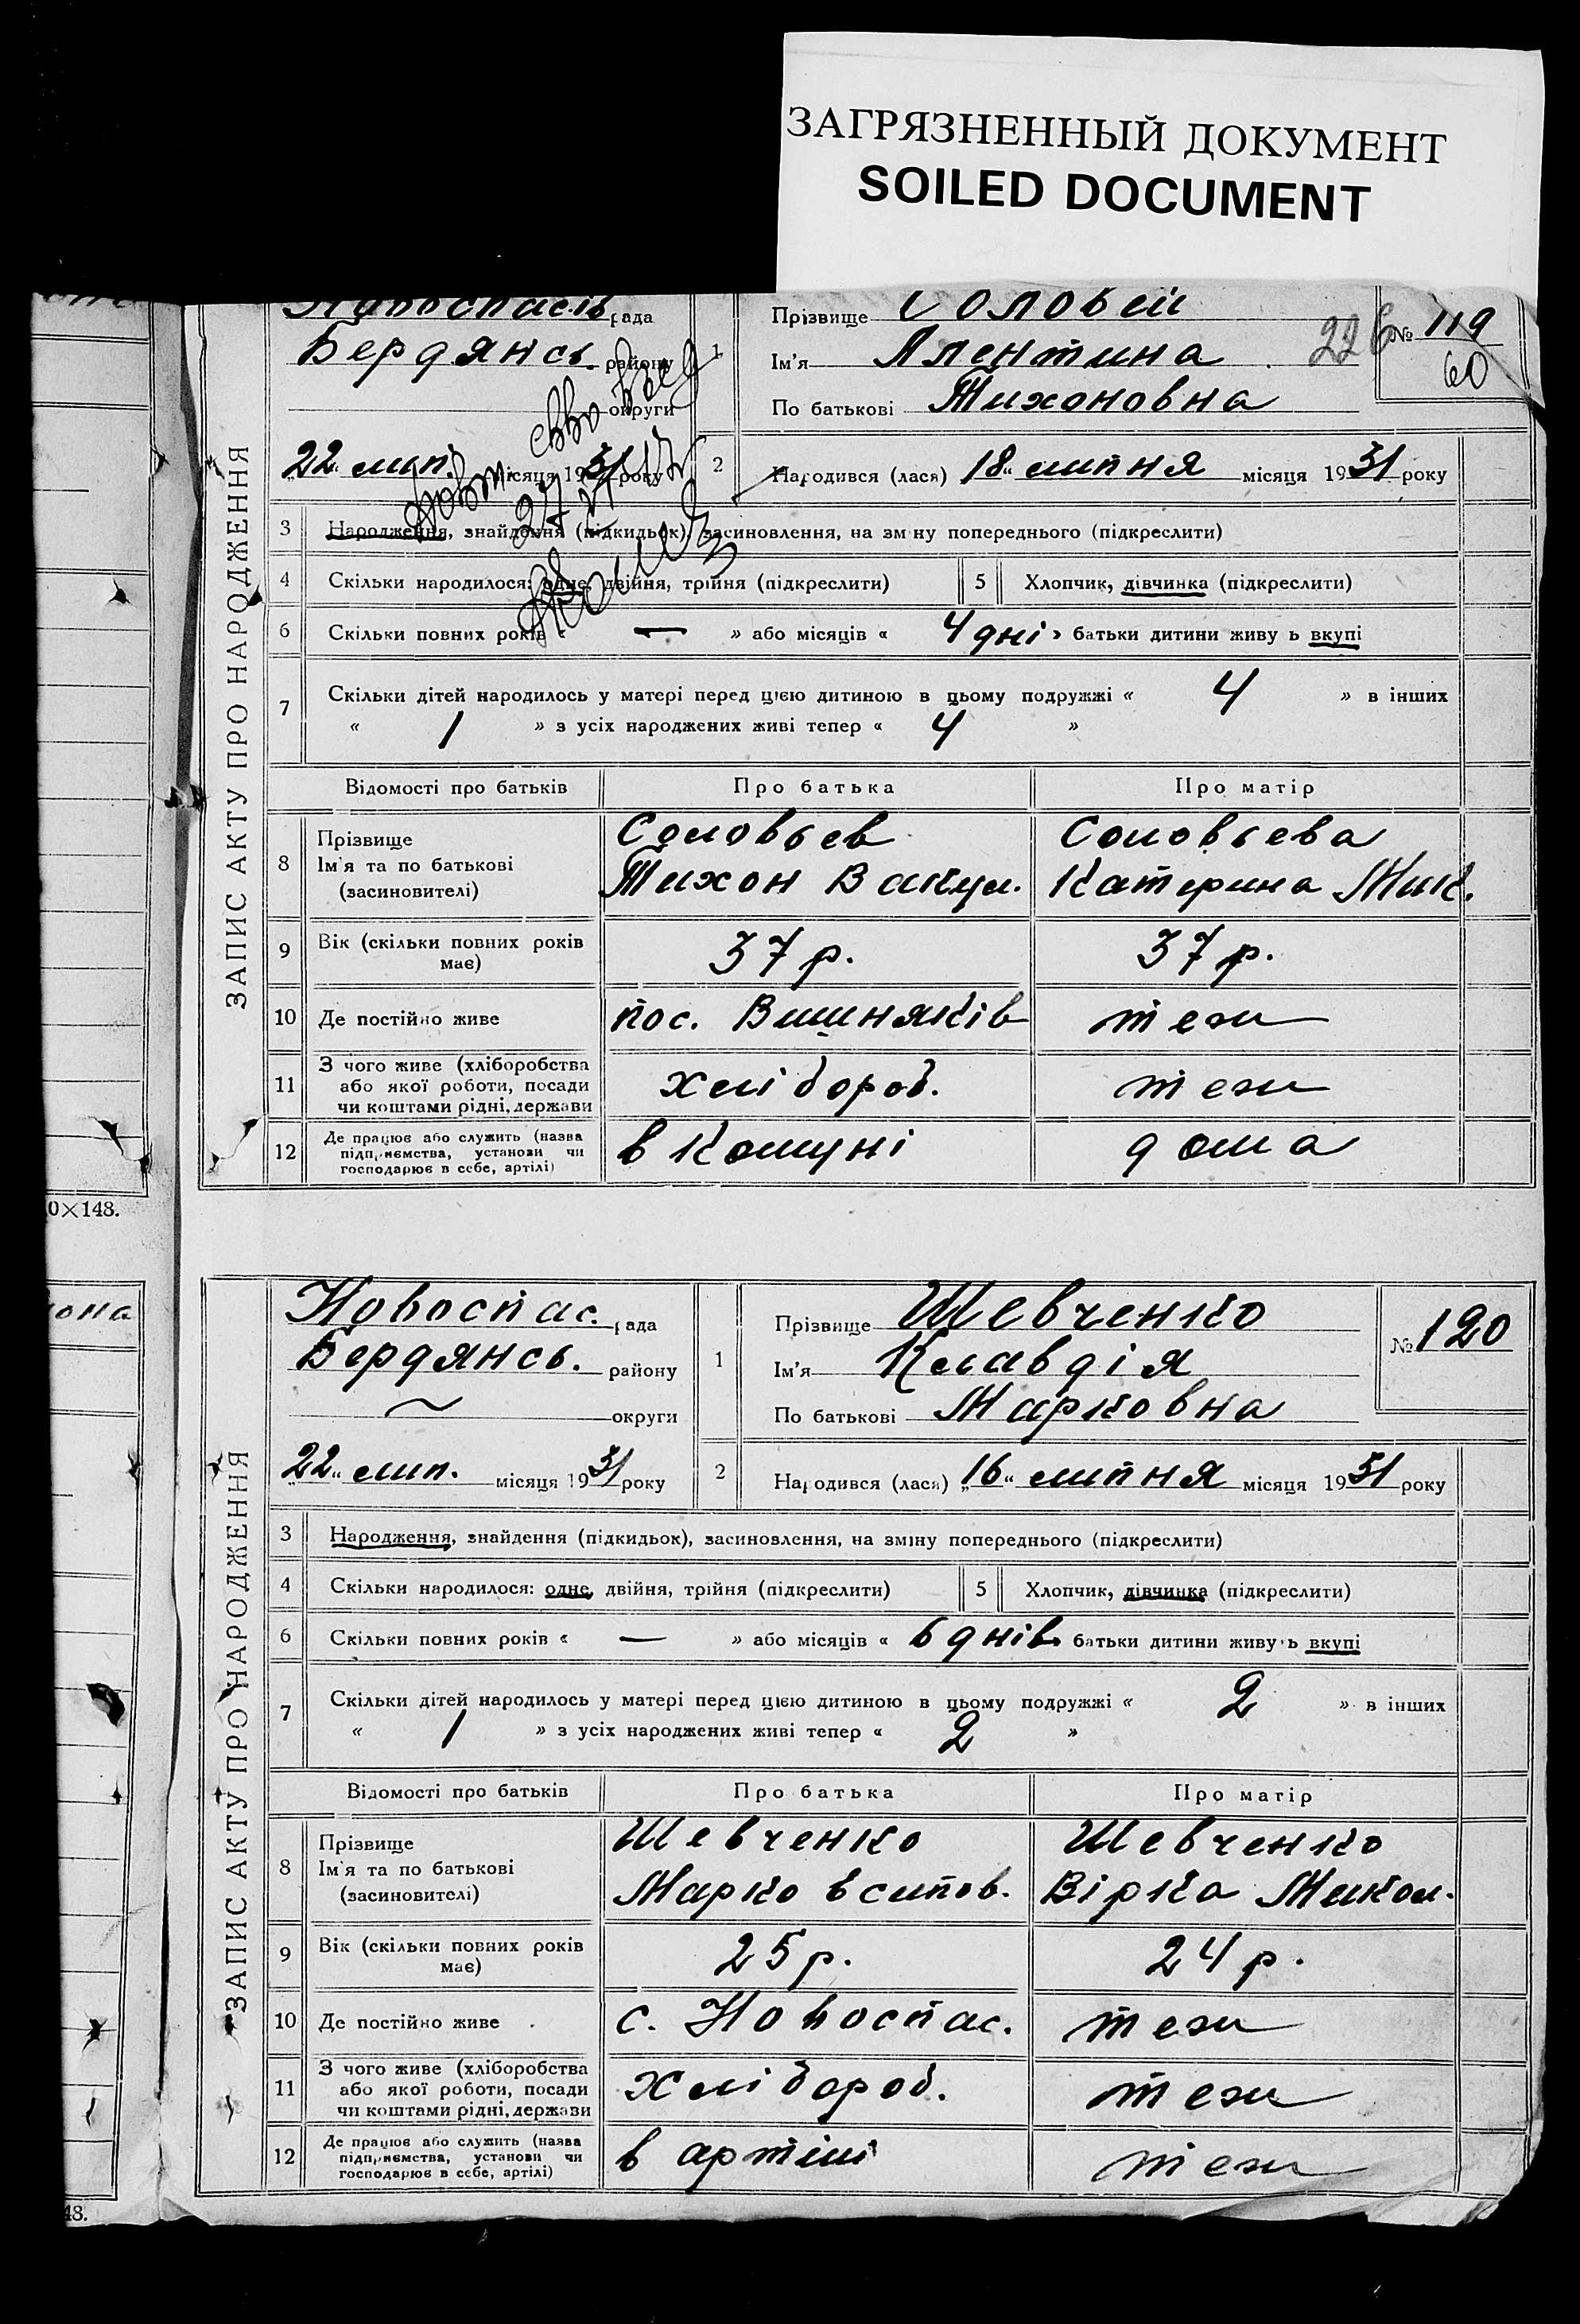 ЗАГРЯЗНЕННЫЙ ДОКУМЕНТ
SOILED DOCUMENT
Новоспасів рада
Бердянсь. району
округи
22 лип. місяця 1931 року
1
Прізвище Соловей
Ім'я Алентина
По батькові Тихоновна
226
№ 119
60
2
Народився (лася) „18" липня місяця 1931 року
27
ЗАПИС АКТУ ПРО НАРОДЖЕННЯ
3 Народження, знайдення (підкидьок), засиновлення, на зміну попереднього (підкреслити)
4 Скільки народилося: одне, двійня, трійня (підкреслити) 5 Хлопчик, дівчинка (підкреслити)
6 Скільки повних років « — » або місяців « 4 дні » батьки дитини живуть вкупі
7 Скільки дітей народилось у матері перед цією дитиною в цьому подружжі « 4 » в інших
« 1 » з усіх народжених живі тепер « 4 »
Відомості про батьків Про батька Про матір
8 Прізвище Ім'я та по батькові (засиновителі)
Соловьев Соловьева
Тихон Вакул. Катерина Мик.
9 Вік (скільки повних років має) 37 р. 37 р.
10 Де постійно живе пос. Вишняків теж
11 З чого живе (хліборобства або якої роботи, посади чи коштами рідні, держави хлібороб. теж
12 Де працює або служить (назва підприємства, установи чи господарює в себе, артілі) в комуні дома
0×148.
она
Новоспас. рада
Бердянсь. району
~ округи
22" лип. місяця 1931 року
1
Прізвище Шевченко
Ім'я Клавдія
По батькові Марковна
№ 120
2
Народився (лася) „16" липня місяця 1931 року
ЗАПИС АКТУ ПРО НАРОДЖЕННЯ
3 Народження, знайдення (підкидьок), засиновлення, на зміну попереднього (підкреслити)
4 Скільки народилося: одне, двійня, трійня (підкреслити) 5 Хлопчик, дівчинка (підкреслити)
6 Скільки повних років « — » або місяців « 6 днів » батьки дитини живуть вкупі
7 Скільки дітей народилось у матері перед цією дитиною в цьому подружжі « 2 » в інших
« 1 » з усіх народжених живі тепер « 2 »
Відомості про батьків Про батька Про матір
8 Прізвище Ім'я та по батькові (засиновителі)
Шевченко Шевченко
Марко Вірка Микол.
9 Вік (скільки повних років має) 25 р. 24 р.
10 Де постійно живе с. Новоспас. теж
11 З чого живе (хліборобства або якої роботи, посади чи коштами рідні, держави хлібороб. теж
12 Де працює або служить (назва підприємства, установи чи господарює в себе, артілі) в артілі теж
48.